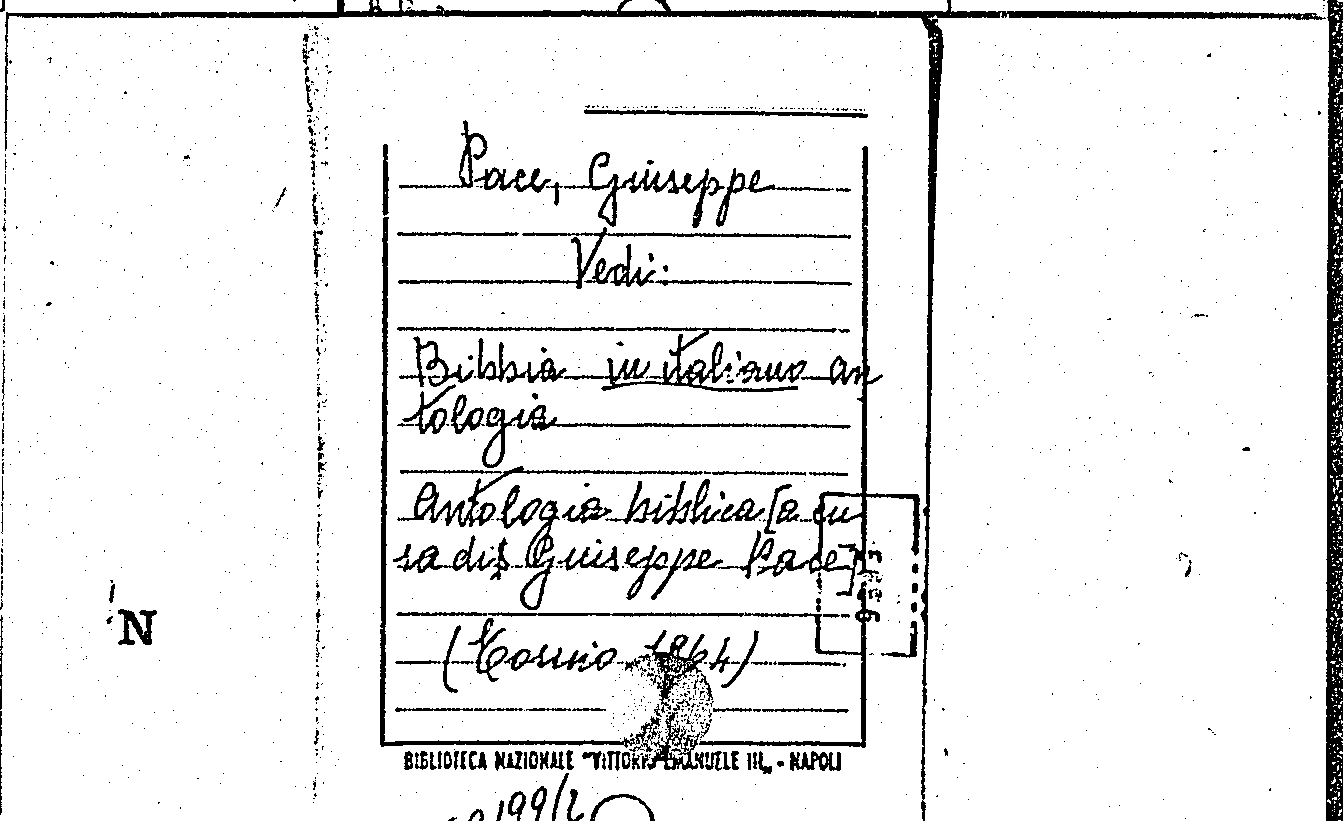 Pace, Giuseppe
Vedi:
Bibbia in italiano an
tologia
Antologia biblica [a cu
ra di Giuseppe Pace]
(Torino 1964)
N
BIBLIOTECA NAZIONALE "VITTORIO EMANUELE III„ - NAPOLI
199/2